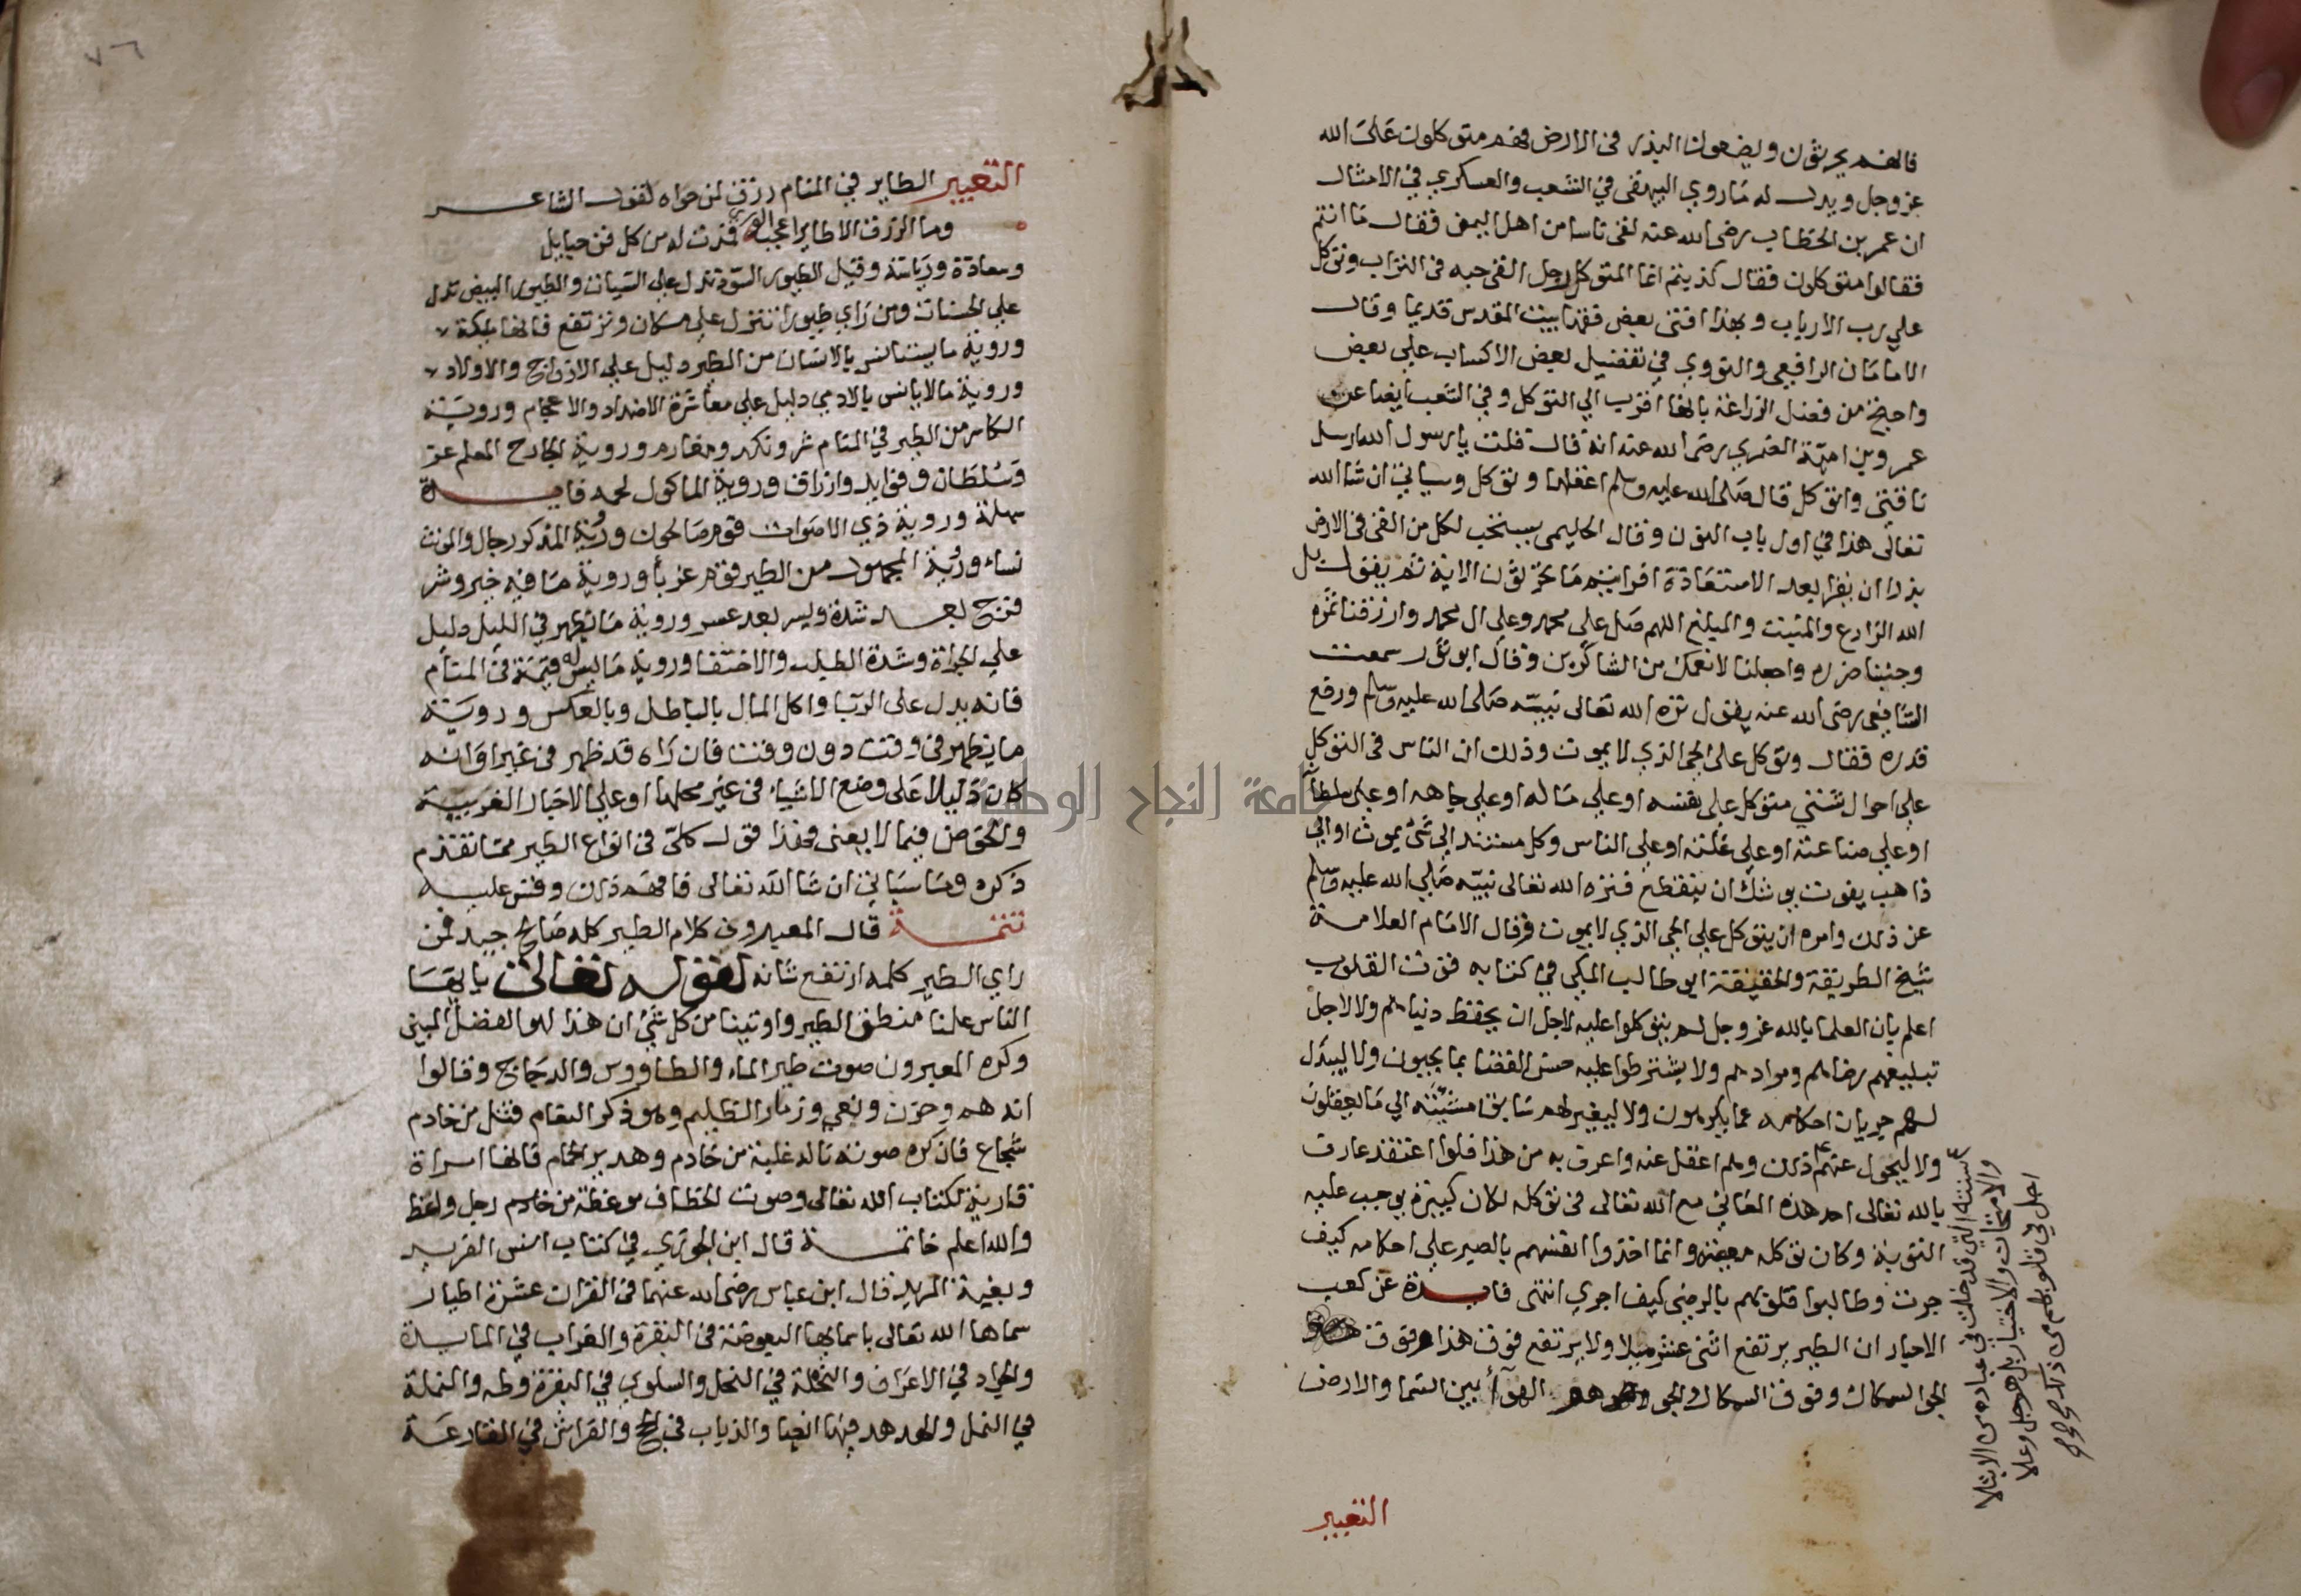 فانهم يحرثون ويضعون البذر في الارض فهم متوكلون على الله
عز وجل ويدل له ما روي البيهقي في الشعب والعسكري في الامثال
ان عمر بن الخطاب رضي الله عنه لقي ناسا من اهل اليمن فقال ما انتم
فقالوا متوكلون فقال كذبتم انما المتوكل رجل القي حبه في التراب وتوكل
علي رب الارباب وبهذا افتي بعض فقها بيت المقدس قديما وقال
الامامان الرافعي والنووي في تفضيل بعض الاكساب علي بعض
واحتج من فضل الزراعة بانها اقرب الي التوكل وفي الشعب ايضا عن
عمرو بن امية الضمري رضي الله عنه انه قال قلت يا رسول الله ارسل
ناقتي واتوكل قال صلى الله عليه وسلم اعقلها وتوكل وسياتي ان شا الله
تعالى هذا في اول باب النون وقال الحليمي يستحب لكل من القي في الارض
بذرا ان يقرا بعد الاستعاذة افرايتم ما تحرثون الاية ثم يقول بل
الله الزارع والمنبت والمبلغ اللهم صل على محمد وعلى ال محمد وارزقنا ثمره
وجنبنا ضرره واجعلنا لانعمك من الشاكرين وقال ابو ثور سمعت
الشافعي رضي الله عنه يقول نزه الله تعالى نبيه صلى الله عليه وسلم ورفع
قدره فقال وتوكل على الحي الذي لا يموت وذلك ان الناس في التوكل
علي احوال شتي متوكل علي نفسه او علي ماله او علي جاهه او علي سلطانه
او علي صناعته او علي غلته او علي الناس وكل مستند الي شئ يموت او الي
ذاهب يفوت يوشك ان ينقطع فنزه الله تعالى نبيه صلي الله عليه وسلم
عن ذلك وامره ان يتوكل علي الحي الذي لا يموت وقال الامام العلامة
شيخ الطريقة والحقيقة ابو طالب المكي في كتابه قوت القلوب
اعلم بان العلما بالله عز وجل لم يتوكلوا عليه لاجل ان يحفظ دنياهم ولا لاجل
تبليغهم رضاهم ومرادهم ولا يشترطوا عليه حسن القضا بما يحبون ولا ليبدل
لهم جريان احكامه عما يكرهون ولا ليغير لهم سابق مشيئته الي ما يعقلون
ولا ليحول عنهم ذلك وهم اعقل عنه واعرف به من هذا فلو اعتقد عارف
بالله تعالى احد هذه المعاني مع الله تعالى في توكله لكان كبيرة يوجب عليه
التوبة وكان توكله معصية وانما اخذوا انفسهم بالصبر علي احكامه كيف
جرت وطالبوا قلوبهم بالرضى كيف اجري انتهى فايدة عن كعب
الاحبار ان الطير يرتفع اثني عشر ميلا ولا يرتفع فوق هذا وفوق
الجو السكاك وفوق السكاك والجو هو الهوآ بين السما والارض
سنته التي قد خلت في عباده من الابتلا
والامتحان والاختبار بل هو جل وعلا
اجل في قلوبهم من ذلك
التعبير
٧٦
التعبير الطاير في المنام رزق لمن حواه لقول الشاعر
وما الرزق الا طاير اعجب الوري فمدت له من كل فن حبايل
وسعادة ورياسة وقيل الطيور السود تدل علي السيات والطيور البيض تدل
علي الحسنات ومن راي طيورا تنزل علي مكان وترتفع فانها ملايكة
وروية ما يستانس بالانسان من الطير دليل علي الازواج والاولاد
وروية ما لا يانس بالادمي دليل علي معاشرة الاضداد والاعجام وروية
الكاسر من الطير في المنام شر ونكد ومغارم وروية الجارح المعلم عز
وسلطان وفوايد وارزاق وروية الماكول لحمه فايدة
سهلة وروية ذي الاصوات قوم صالحون ورؤية المذكر رجال والمونث
نساء ورؤية المجهول من الطير قوم غربأ وروية ما فيه خير وشر
فرج بعد شدة ويسر بعد عسر وروية ما يظهر في الليل دليل
علي الجراة وشدة الطلب والاختفا وروية ما ليس له قيمة في المنام
فانه يدل على الربا واكل المال بالباطل وبالعكس وروية
ما يظهر في وقت دون وقت فان راه قد ظهر في غير اوانه
كان دليلا على وضع الاشياء في غير محلها او علي الاخبار الغريبة
والخوض فيما لا يعني فهذا قول كلي في انواع الطير مما تقدم
ذكره وما سياتي ان شا الله تعالى فافهم ذلك وقس عليه
تتمة قال المعبرون كلام الطير كله صالح جيد فمن
راي الطير كلمه ارتفع شانه لقوله تعالى يا ايها
الناس علمنا منطق الطير واوتينا من كل شئ ان هذا لهو الفضل المبين
وكره المعبرون صوت طير الماء والطاووس والدجاج وقالوا
انه هم وحزن ونعي وزمار الظليم وهو ذكر النعام قتل من خادم
شجاع فان كره صوته ناله غلبة من خادم وهدير الحمام فانها امراة
قارية لكتاب الله تعالى وصوت الخطاف موعظة من خادم رجل واعظ
والله اعلم خاتمة قال ابن الجوزي في كتاب انس الفريد
وبغية المريد قال ابن عباس رضي الله عنهما في القران عشرة اطيار
سماها الله تعالى باسمايها البعوضة في البقرة والغراب في المايدة
والجراد في الاعراف والنحلة في النحل والسلوي في البقرة وطه والنملة
في النمل والهدهد فيها ايضا والذباب في الحج والفراش في القارعة
جامعة النجاح الوطنية